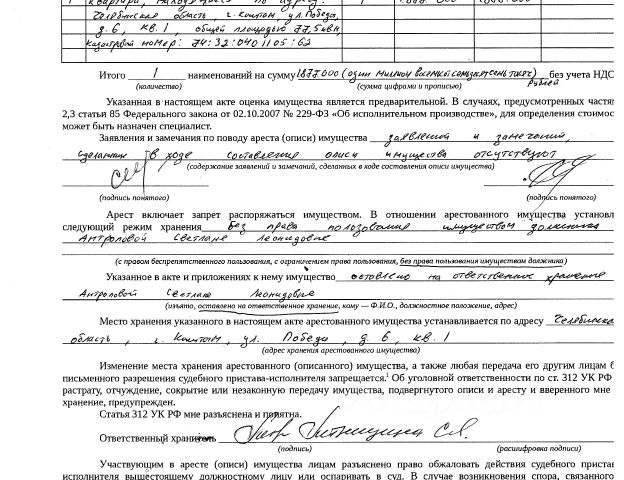 квартира, находящаяся по адресу:
Челябинская область, г. Кыштым, ул. Победа,
д. 6, кв. 1, общей площадью 77,5 кв.м,
кадастровый номер: 74:32:0401105:62
Итого 1 наименований на сумму 1877 000 (один миллион восемьсот семьдесят семь тысяч) без учета НДС
рублей
(количество) (сумма цифрами и прописью)
Указанная в настоящем акте оценка имущества является предварительной. В случаях, предусмотренных частям
2,3 статьи 85 Федерального закона от 02.10.2007 № 229-ФЗ «Об исполнительном производстве», для определения стоимос
может быть назначен специалист.
Заявления и замечания по поводу ареста (описи) имущества заявлений и замечаний,
сделанных в ходе составления описи имущества отсутствуют
(содержание заявлений и замечаний, сделанных в ходе составления описи имущества)
(подпись понятого) (подпись понятого)
Арест включает запрет распоряжаться имуществом. В отношении арестованного имущества установл
следующий режим хранения без права пользования имуществом должника
Антроповой Светлане Леонидовне
(с правом беспрепятственного пользования, с ограничением права пользования, без права пользования имуществом должника)
Указанное в акте и приложениях к нему имущество оставлено на ответственное хранение
Антроповой Светлане Леонидовне
(изъято, оставлено на ответственное хранение, кому — Ф.И.О., должностное положение, адрес)
Место хранения указанного в настоящем акте арестованного имущества устанавливается по адресу Челябинская
область, г. Кыштым, ул. Победа, д. 6, кв. 1
(адрес хранения арестованного имущества)
Изменение места хранения арестованного (описанного) имущества, а также любая передача его другим лицам б
письменного разрешения судебного пристава-исполнителя запрещается.¹ Об уголовной ответственности по ст. 312 УК РФ
растрату, отчуждение, сокрытие или незаконную передачу имущества, подвергнутого описи и аресту и вверенного мне
хранение, предупрежден.
Статья 312 УК РФ мне разъяснена и понятна.
Ответственный хранитель
(подпись) (расшифровка подписи)
Участвующим в аресте (описи) имущества лицам разъяснено право обжаловать действия судебного пристав
исполнителя вышестоящему должностному лицу или оспаривать в суд. В случае возникновения спора, связанного